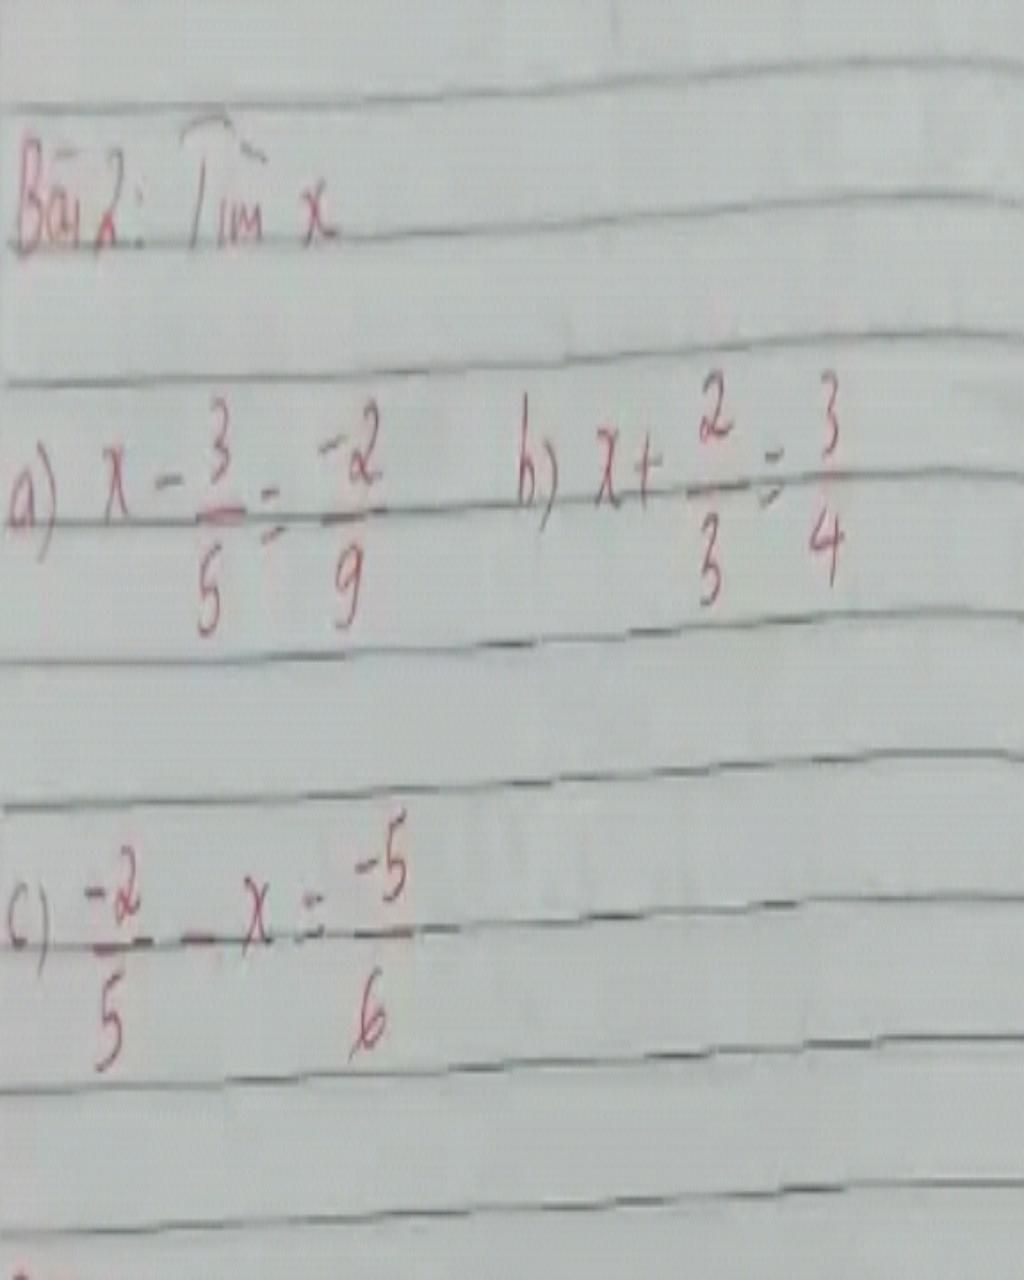 Bài 2: Tìm x
a) x - 3/5 = -2/9 b) x + 2/3 = 3/4
c) -2/5 - x = -5/6